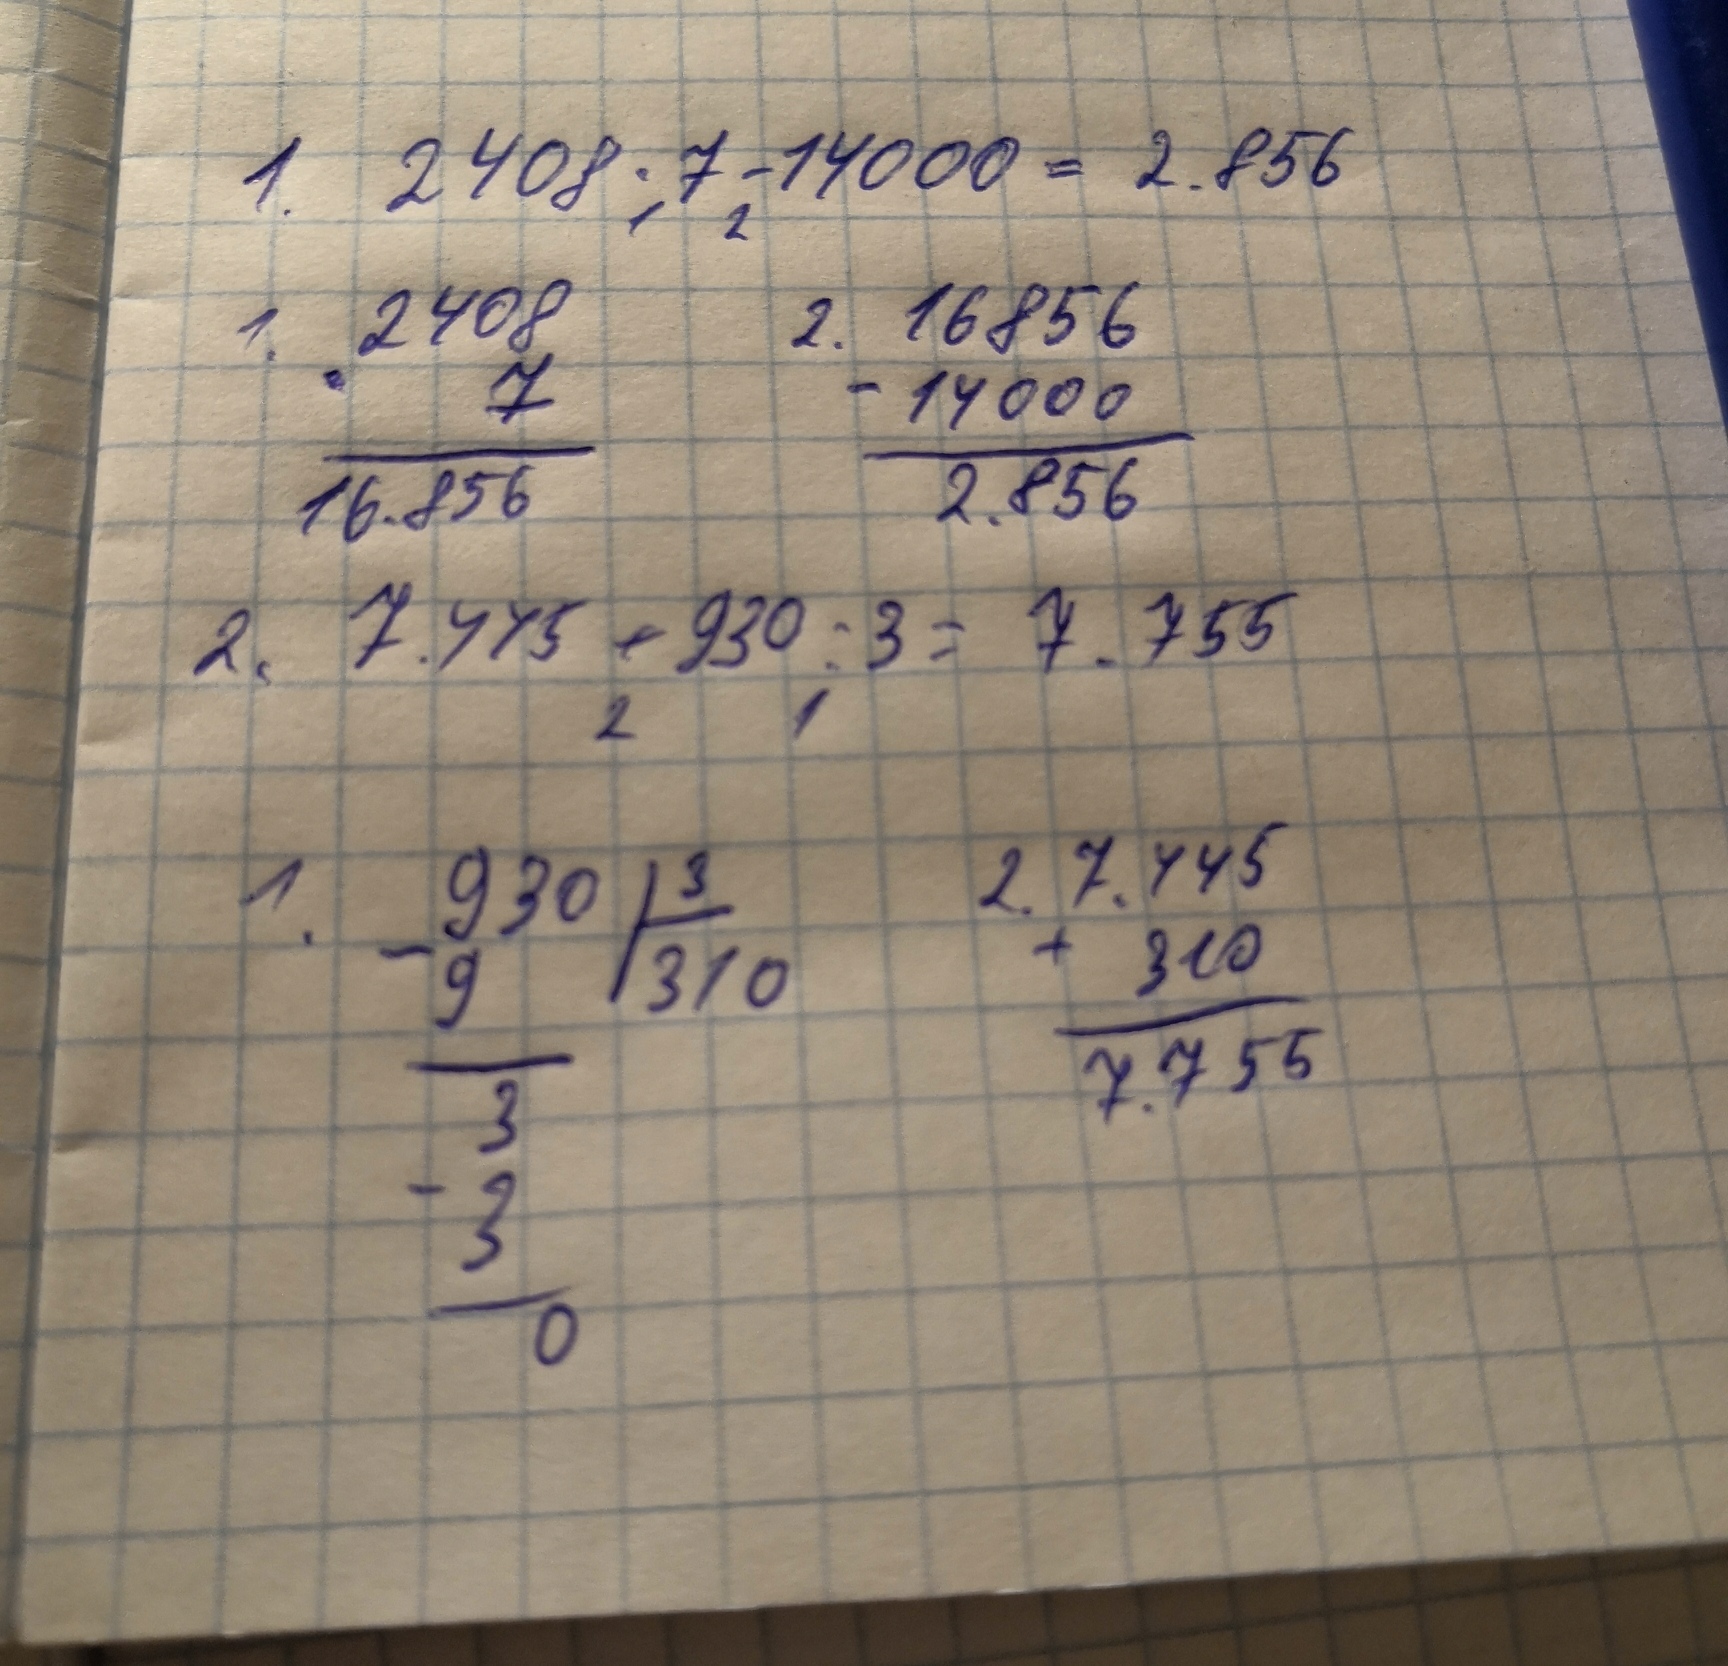 1. 2408 · 7 - 14000 = 2.856
1 2
1. 2408 2. 16856
· 7 - 14000
16.856 2.856
2. 7.445 + 930 : 3 = 7.755
2 1
1. 930 3 2. 7.445
- 9 310 + 310
3 7.755
- 3
0